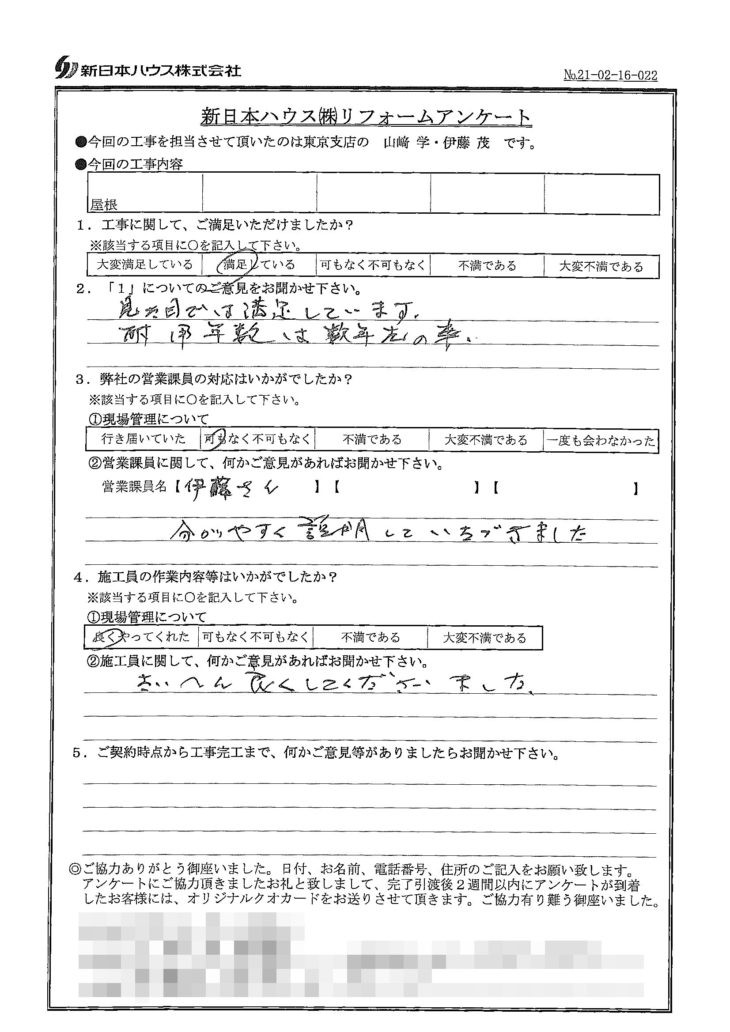 新日本ハウス株式会社
No.21-02-16-022
新日本ハウス㈱リフォームアンケート
●今回の工事を担当させて頂いたのは東京支店の 山﨑 学・伊藤 茂 です。
●今回の工事内容
屋根
1．工事に関して、ご満足いただけましたか？
※該当する項目に○を記入して下さい。
大変満足している 満足している 可もなく不可もなく 不満である 大変不満である
2．「1」についてのご意見をお聞かせ下さい。
見た目では満足しています.
耐用年数は数年先の事.
3．弊社の営業課員の対応はいかがでしたか？
※該当する項目に○を記入して下さい。
①現場管理について
行き届いていた 可もなく不可もなく 不満である 大変不満である 一度も会わなかった
②営業課員に関して、何かご意見があればお聞かせ下さい。
営業課員名【伊藤さん 】【 】【 】
分かりやすく説明していただきました
4．施工員の作業内容等はいかがでしたか？
※該当する項目に○を記入して下さい。
①現場管理について
良くやってくれた 可もなく不可もなく 不満である 大変不満である
②施工員に関して、何かご意見があればお聞かせ下さい。
たいへん良くしてくださいました.
5．ご契約時点から工事完工まで、何かご意見等がありましたらお聞かせ下さい。
◎ご協力ありがとう御座いました。日付、お名前、電話番号、住所のご記入をお願い致します。
アンケートにご協力頂きましたお礼と致しまして、完了引渡後２週間以内にアンケートが到着
したお客様には、オリジナルクオカードをお送りさせて頂きます。ご協力有り難う御座いました。